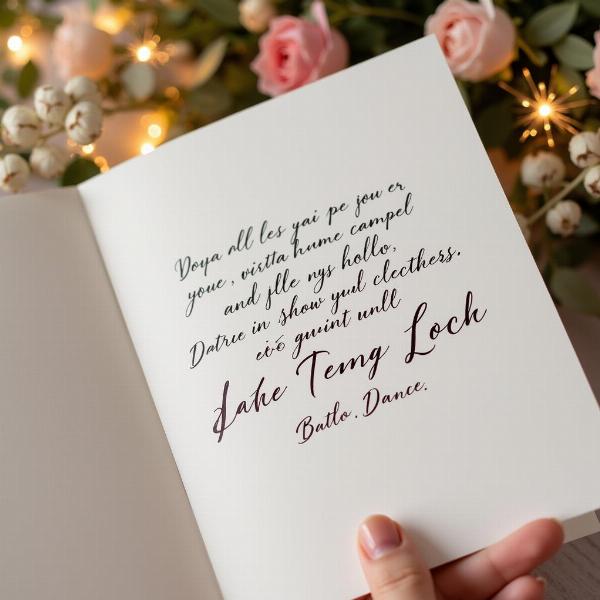 Doya all les yai pe jou er
youe, virtta hume campel
and jlle nys hollo,
Datrue in show yul clecthers.
gwint unll
Lahe Temg Loch
Batlo. Dance.